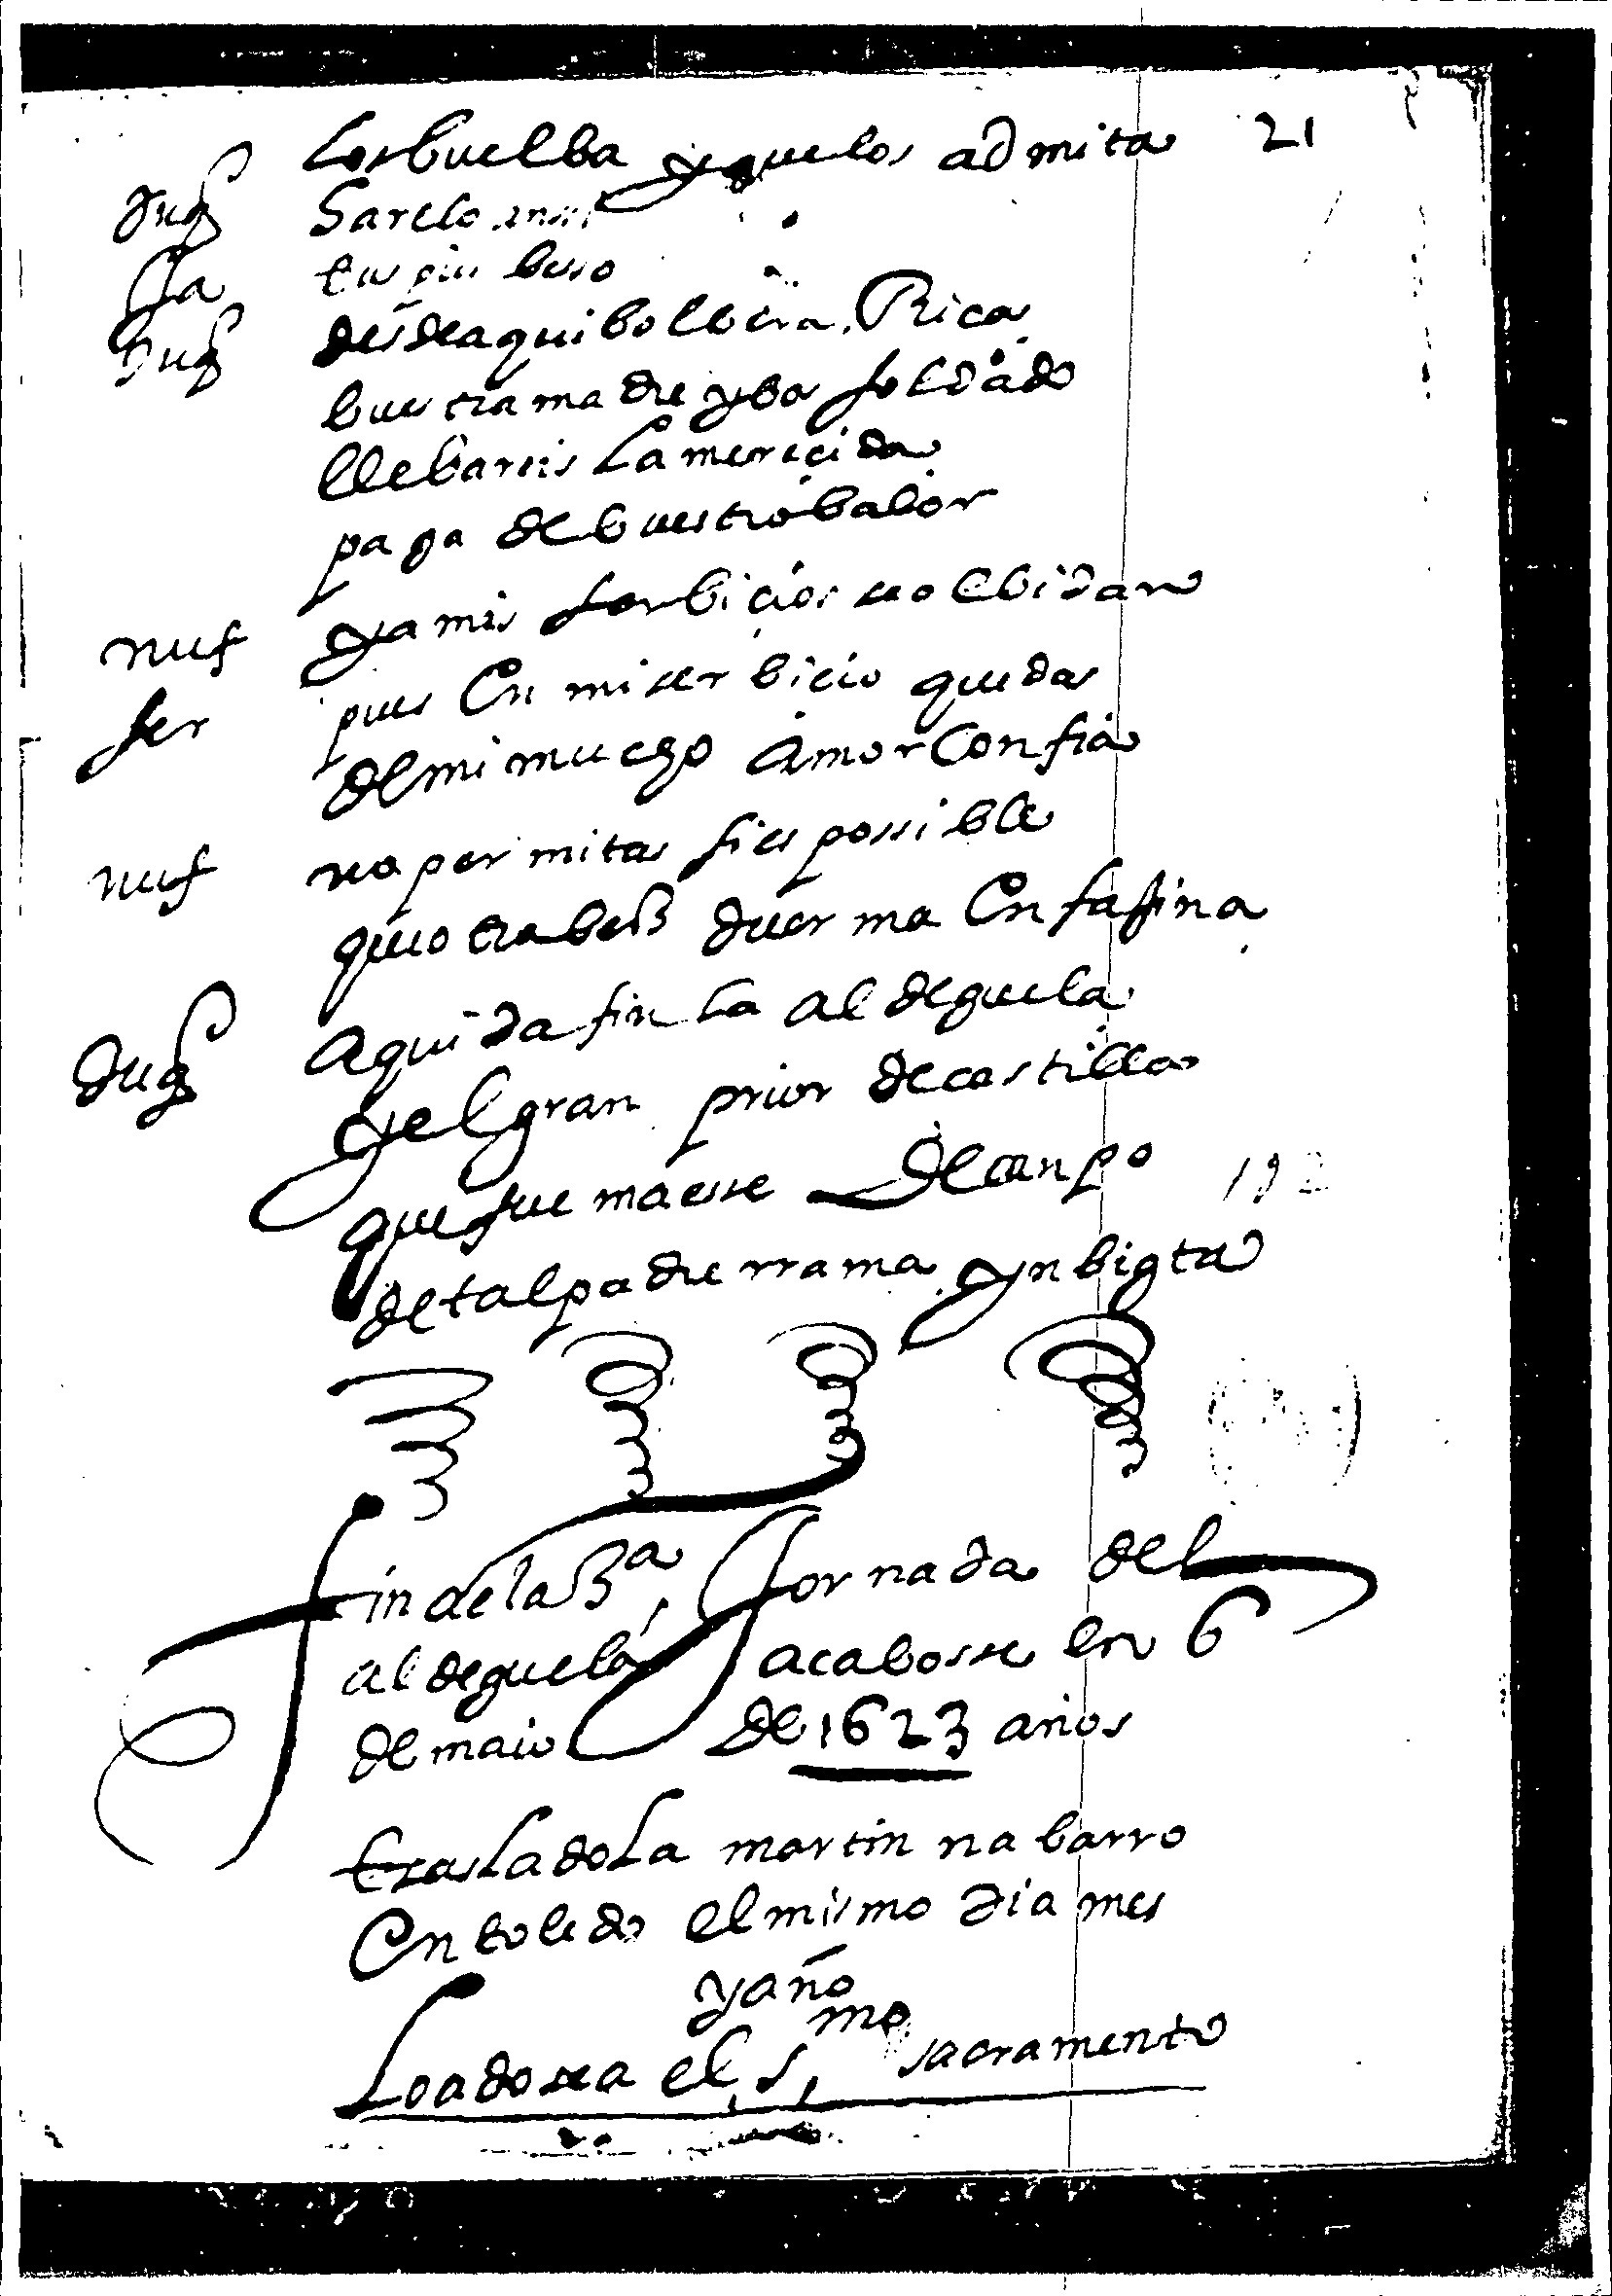 los buelba y que los admita 21
duq harelo ansi
tus pies beso
duq desde aqui bolbera Rica
buestra madre y bos soldado
llebareis la merecida
paga de buestro balor
nuf ya mis serbicios se olbidan
fer pues En mi serbicio quedas
de mi mucho amor Confia
nuf no permitas si es possible
que otra bez duerma En fagina
duq aqui da fin la aldeguela
y el gran prior de castilla
que fue maesse de canpo 192
de tal padre rrama ynbigta
fin de la 3a Jornada del
aldeguela acabosse en 6
de maio de 1623 años
trasladola martin nabarro
En toledo el mismo dia mes
y año
Loado sea el s.mo sacramento